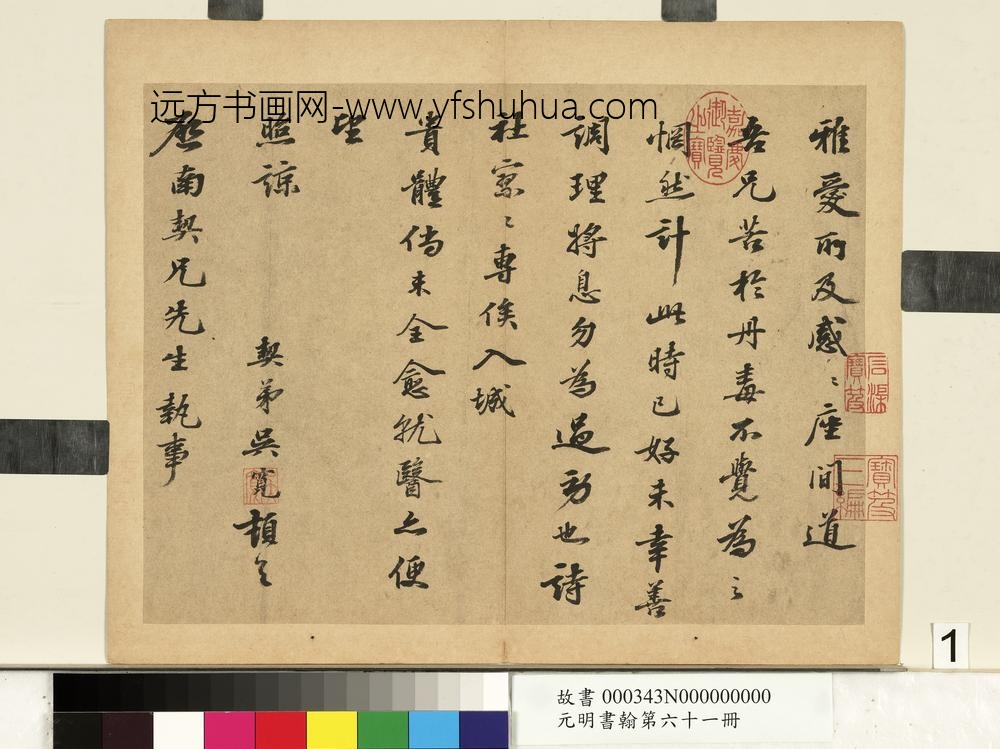 远方书画网-www.yfshuhua.com
雅愛所及感〻座間道
吾兄苦於丹毒不覺為之
惘然計此時已好未幸善
調理將息勿為過勞也詩
社寥〻專俟入城
貴體倘未全愈就醫亦便
望
照諒
契弟吳寬頓首
啟南契兄先生執事
嘉慶御覽之寶
寶笈三編
1
故書 000343N000000000
元明書翰第六十一冊